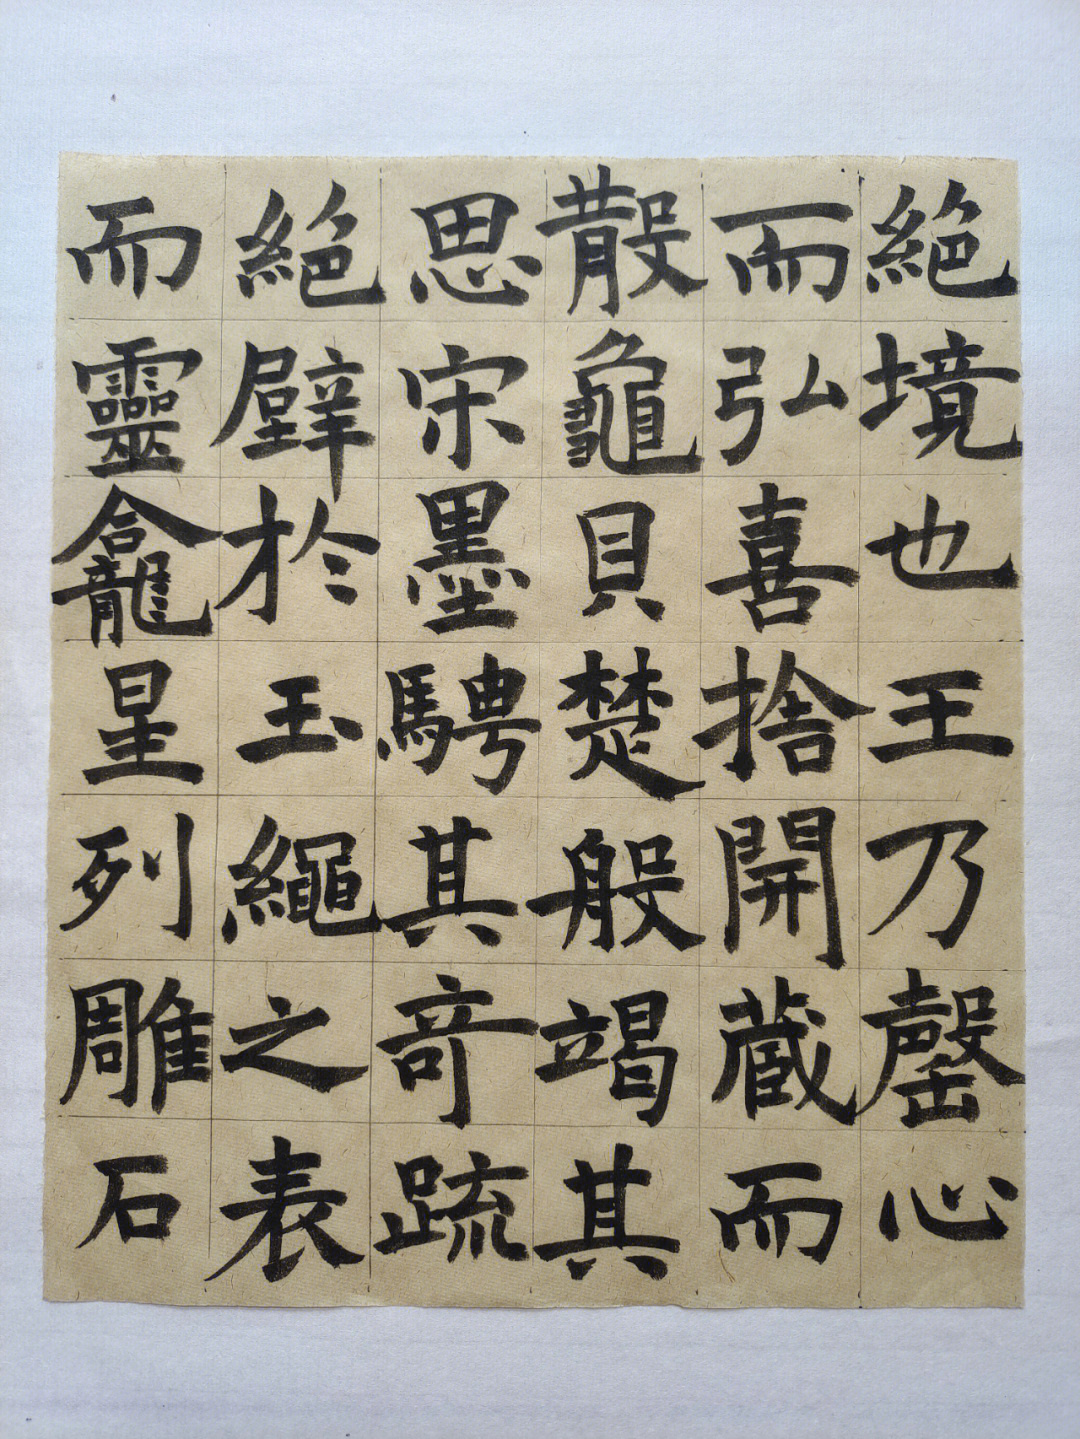 絕境也王乃罄心
而弘喜捨開藏而
散龜貝楚般竭其
思宋墨騁其奇疏
絕壁於玉繩之表
而靈龕星列雕石